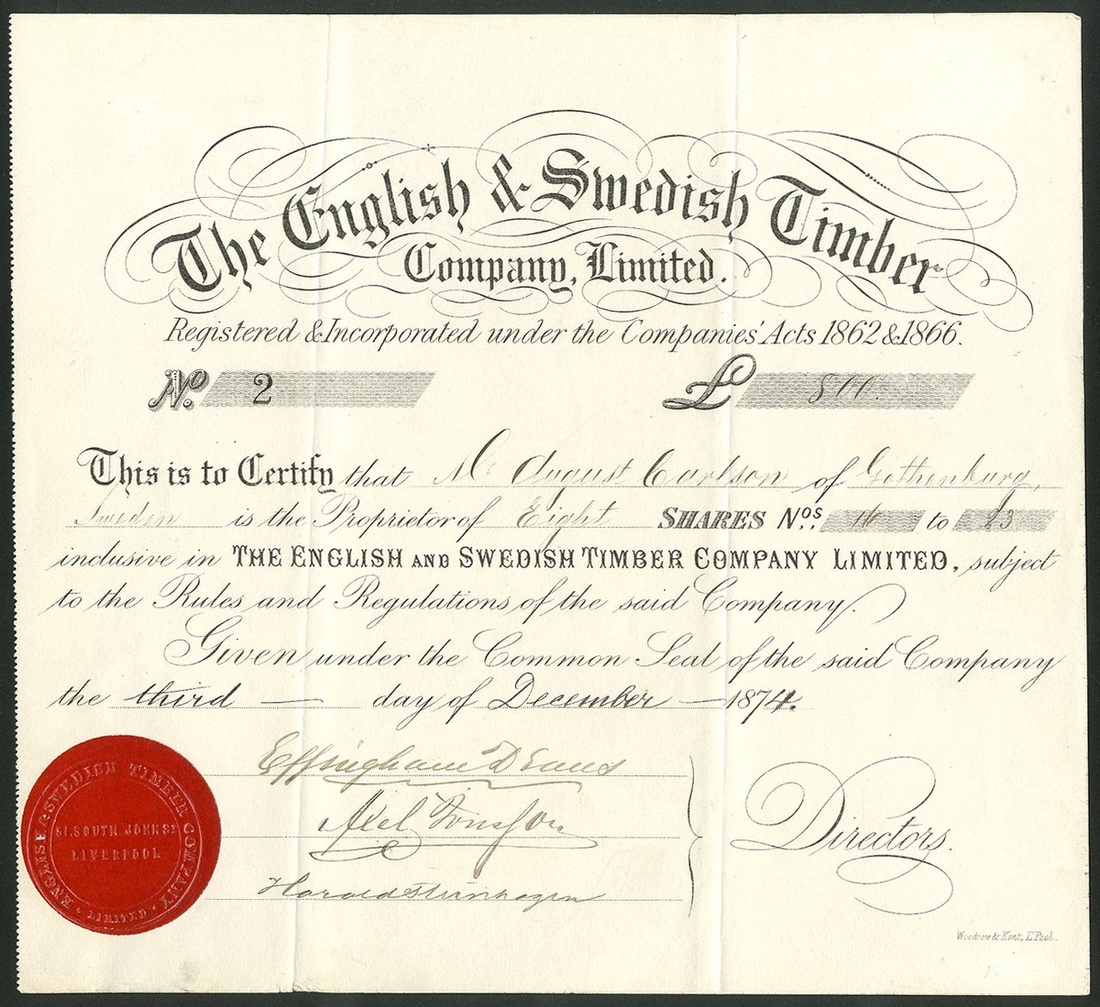 The English & Swedish Timber
Company, Limited.
Registered & Incorporated under the Companies' Acts 1862 & 1866.
No. 2 £ 800.
This is to Certify that Mr August Carlson of Gothenburg,
Sweden is the Proprietor of Eight SHARES Nos. 16 to 23
inclusive in THE ENGLISH AND SWEDISH TIMBER COMPANY LIMITED, subject
to the Rules and Regulations of the said Company.
Given under the Common Seal of the said Company
the third — day of December — 1874.
Effingham D Evans
Axel
Harald
Directors.
ENGLISH & SWEDISH TIMBER COMPANY
51. SOUTH JOHN ST
LIVERPOOL
LIMITED
Woodrow & Kent, L'Pool.